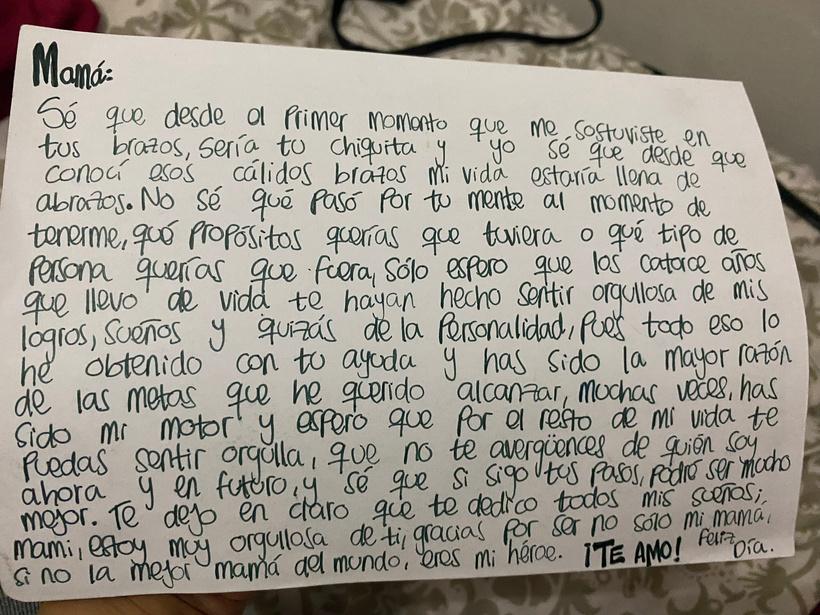 Mamá:
Sé que desde el primer momento que me sostuviste en
tus brazos, sería tu chiquita y yo sé que desde que
conocí esos cálidos brazos mi vida estaría llena de
abrazos. No sé qué pasó por tu mente al momento de
tenerme, qué propósitos querías que tuviera o qué tipo de
persona querías que fuera, sólo espero que los catorce años
que llevo de vida te hayan hecho sentir orgullosa de mis
logros, sueños y quizás de la personalidad, pues todo eso lo
he obtenido con tu ayuda y has sido la mayor razón
de las metas que he querido alcanzar, muchas veces, has
sido mi motor y espero que por el resto de mi vida te
puedas sentir orgulla, que no te avergüences de quién soy
ahora y en futuro, y sé que si sigo tus pasos, podré ser mucho
mejor. Te dejo en claro que te dedico todos mis sueños,
mami, estoy muy orgullosa de ti, gracias por ser no sólo mi mamá,
si no la mejor mamá del mundo, eres mi héroe. ¡TE AMO! Feliz
Día.